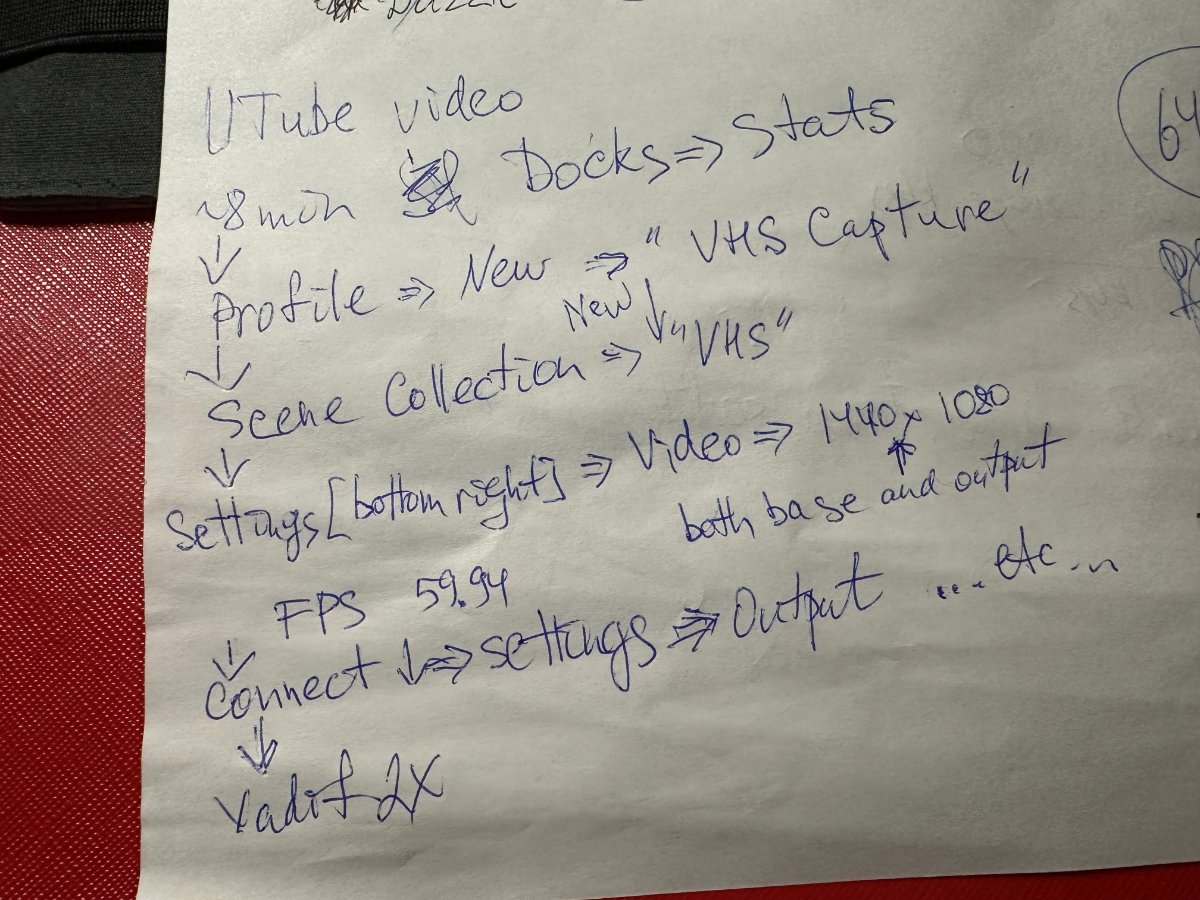 Dazzle
UTube video
~8 min Docks => Stats
↓
Profile => New => "VHS Capture"
↓ New ↓
Scene Collection => "VHS"
↓
Settings [bottom right] => Video => 1440 x 1080
↑
both base and output
FPS 59.94
↓
Connect ↓ => settings => Output .... etc...
↓
Yadif 2X
64